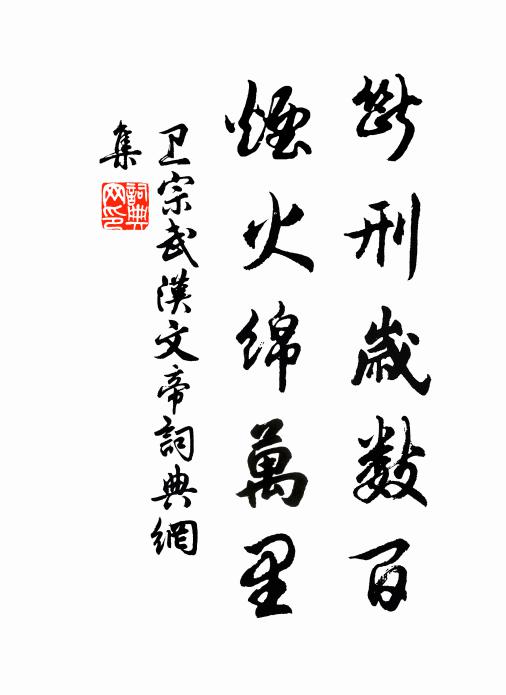 断刑歲数百
煙火綿萬里
卫宗武漢文帝詞典網
集
詞典网印